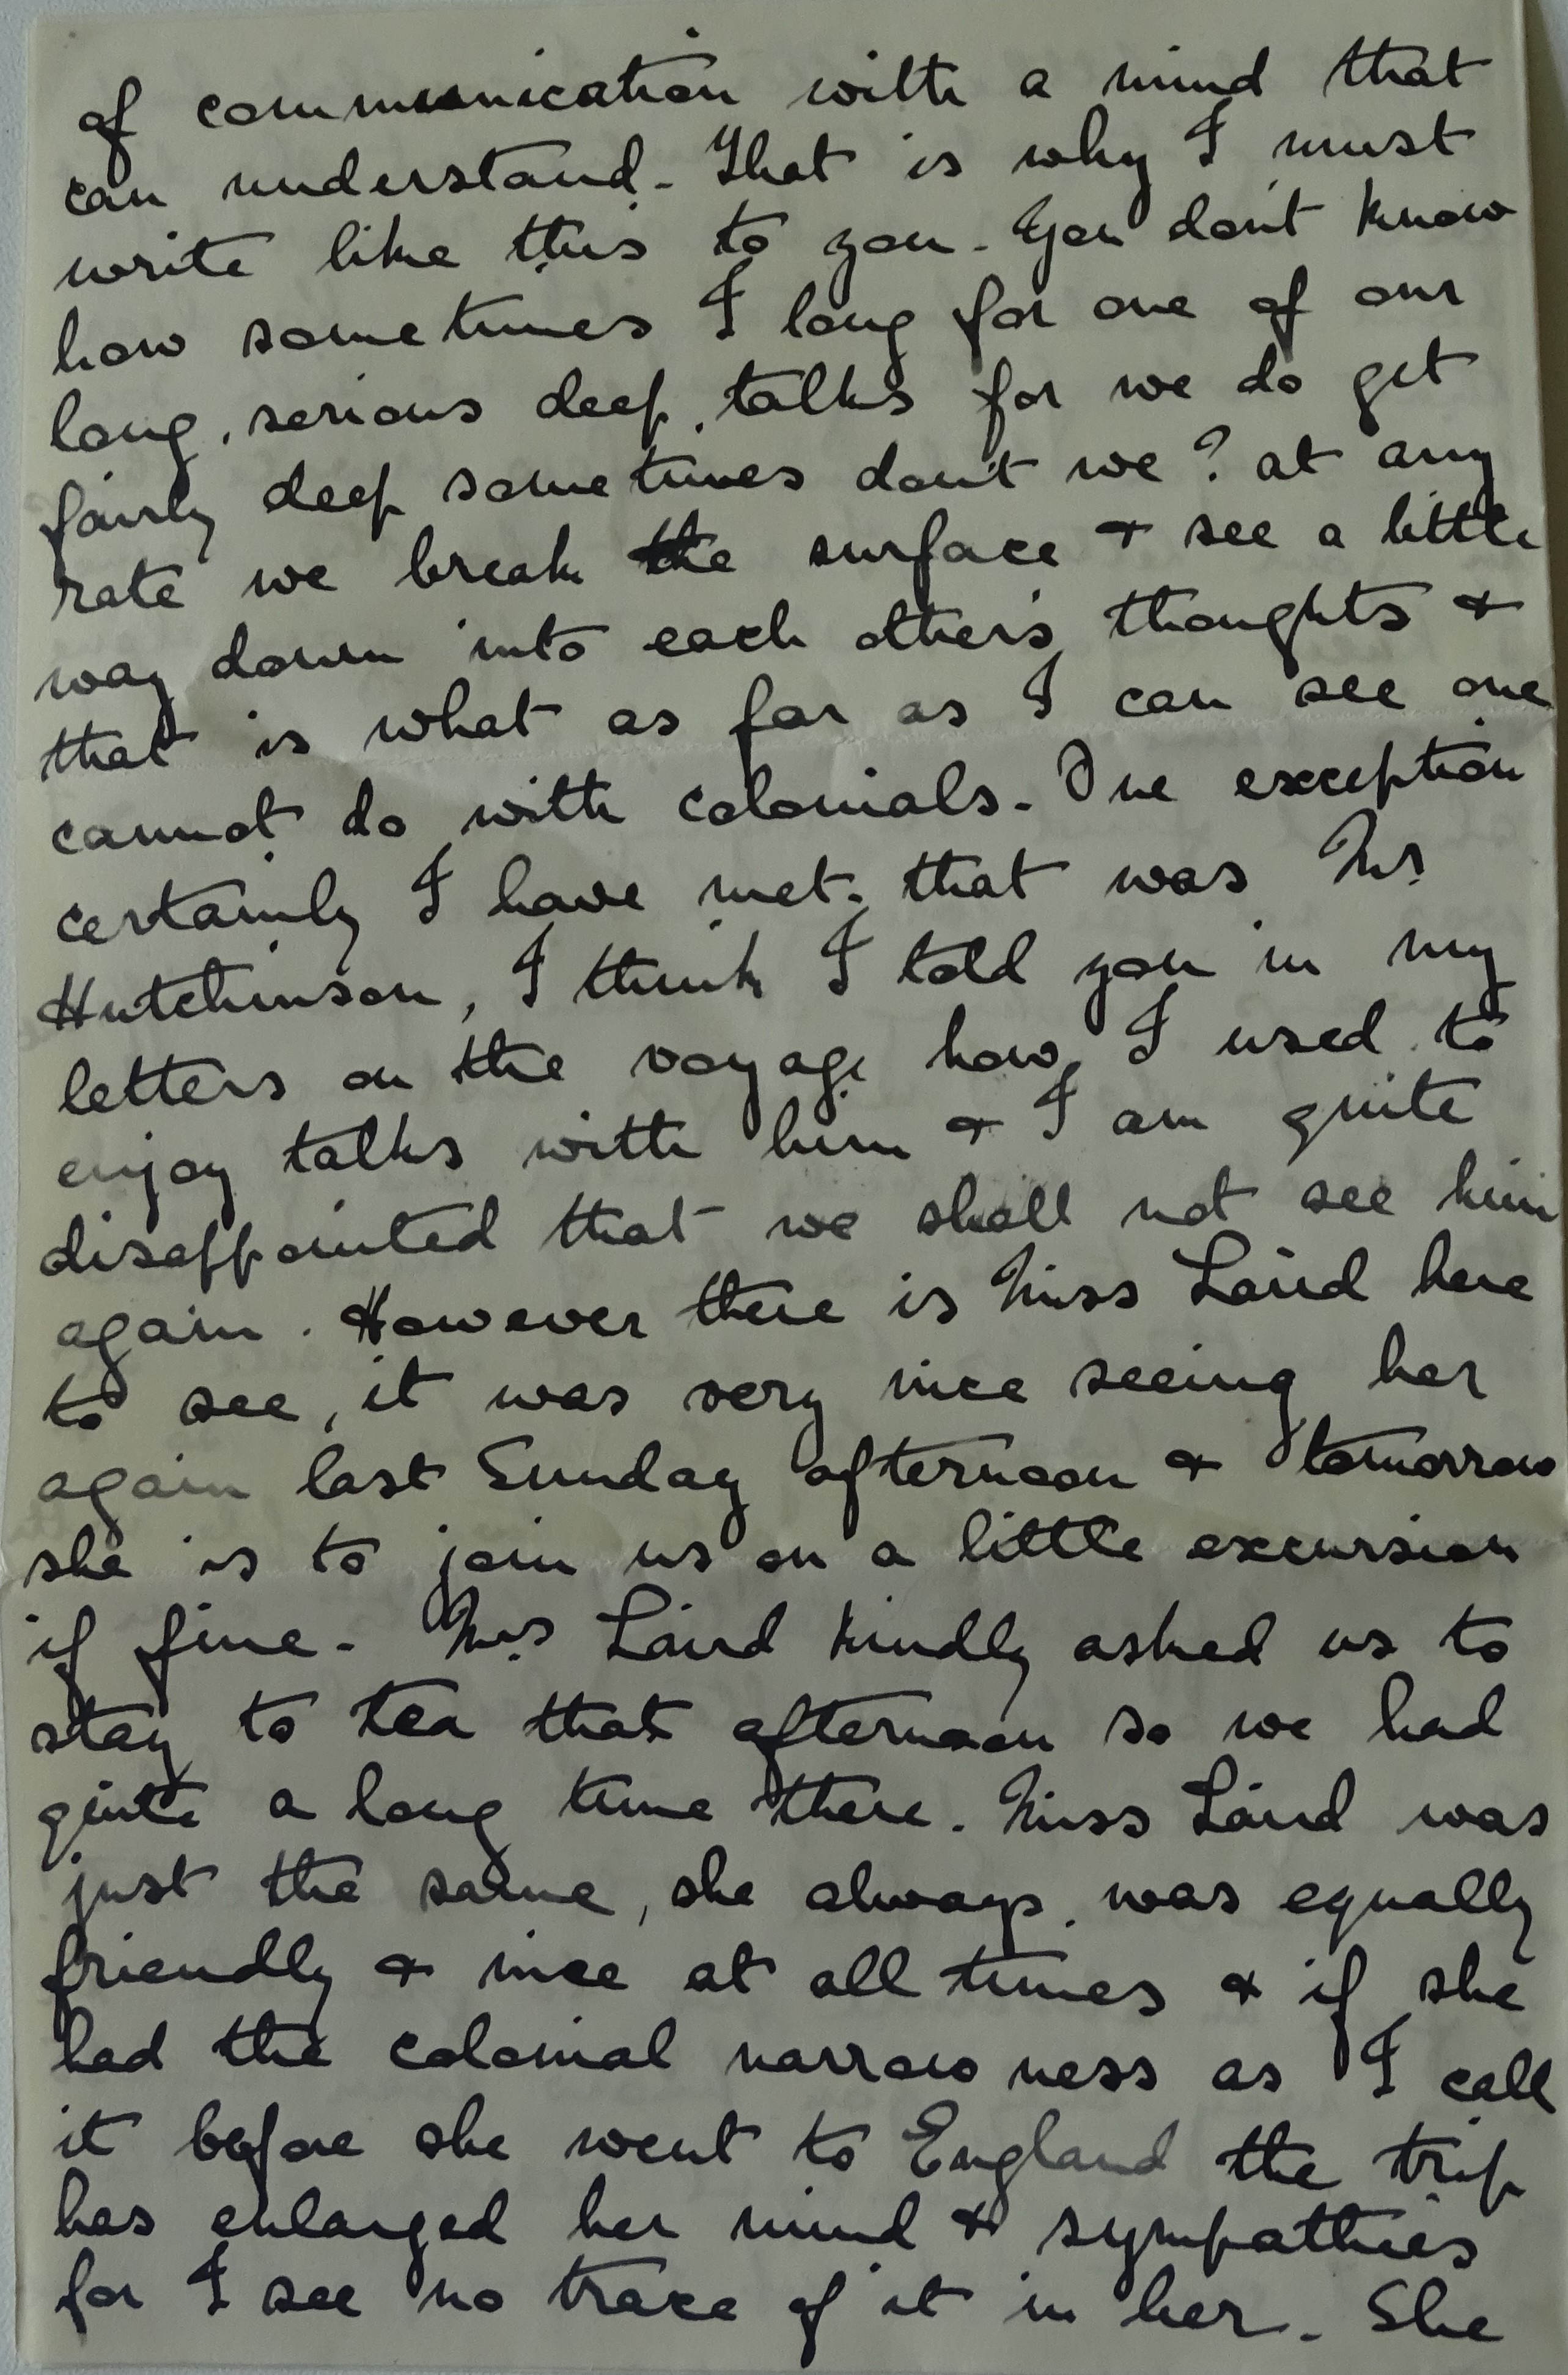 of communication with a mind that
can understand. That is why I must
write like this to you. You don't know
how sometimes I long for one of our
long, serious deep, talks for we do get
fairly deep sometimes don't we? at any
rate we break the surface & see a little
way down into each other's thoughts &
that is what as far as I can see one
cannot do with colonials. One exception
certainly I have met, that was Mr
Hutchinson, I think I told you in my
letters on the voyage how I used to
enjoy talks with him & I am quite
disappointed that we shall not see him
again. However there is Miss Laird here
to see, it was very nice seeing her
again last Sunday afternoon & tomorrow
she is to join us on a little excursion
if fine. Mrs Laird kindly asked us to
stay to tea that afternoon so we had
quite a long time there. Miss Laird was
just the same, she always, was equally
friendly & nice at all times & if she
had the colonial narrowness as I call
it before she went to England the trip
has enlarged her mind & sympathies
for I see no trace of it in her. She